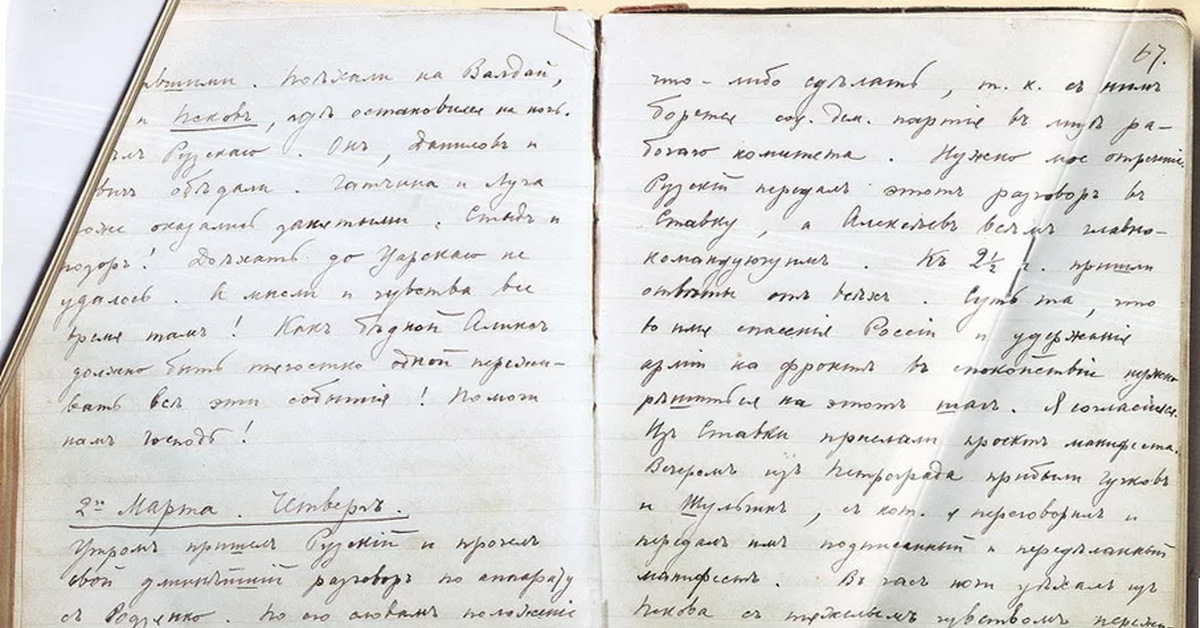 явшими. Поѣхали на Валдай,
и Псковъ, гдѣ остановился на ночь.
ѣлъ Рузскаго. Онъ, Даниловъ и
вичъ обѣдали. Гатчина и Луга
оже оказались занятыми. Стыдъ и
позоръ! Доѣхать до Царскаго не
удалось. А мысли и чувства все
время тамъ! Какъ бѣдной Аликсъ
должно быть тягостно одной пережи-
вать всѣ эти событія! Помоги
намъ Господь!
2го Марта. Четвергъ.
Утромъ пришелъ Рузскій и прочелъ
свой длиннѣйшій разговоръ по аппарату
съ Родзянко. По его словамъ положеніе
67.
что-либо сдѣлать, т. к. съ нимъ
борется соц. дем. партія въ лицѣ ра-
бочаго комитета. Нужно мое отреченіе.
Рузскій передалъ этотъ разговоръ въ
Ставку, а Алексѣевъ всѣмъ главно-
командующимъ. Къ 2½ ч. пришли
отвѣты отъ всѣхъ. Суть та, что
во имя спасенія Россіи и удержанія
арміи на фронтѣ въ спокойствіи нужно
рѣшиться на этотъ шагъ. Я согласился.
Изъ Ставки прислали проектъ манифеста.
Вечеромъ изъ Петрограда прибыли Гучковъ
и Шульгинъ, съ кот. я переговорилъ и
передалъ имъ подписанный и передѣланный
манифестъ. Въ часъ ночи уѣхалъ изъ
Пскова съ тяжелымъ чувствомъ пережи-